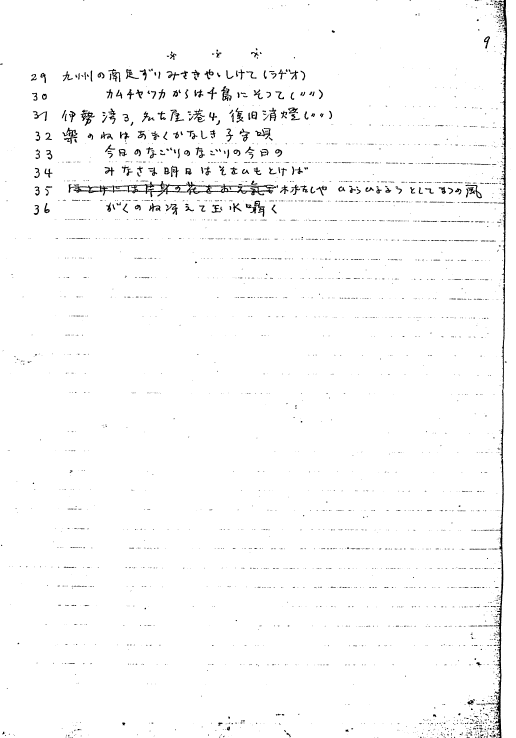 9
* * *
29 九州の南足ずりみさきや、しけて(ラヂオ)
30 カムチャツカからは千島にそって(〃〃)
31 伊勢湾3, 名古屋港4, 復旧消燈(〃〃)
32 楽のねはあまくかなしき子守唄
33 今日のなごりのなごりの今日の
34 みなさま明日はそをひもとけば
35 ほとけには 花を お元氣で ひようひようとして 風
36 がくのね冴えて玉水囁く